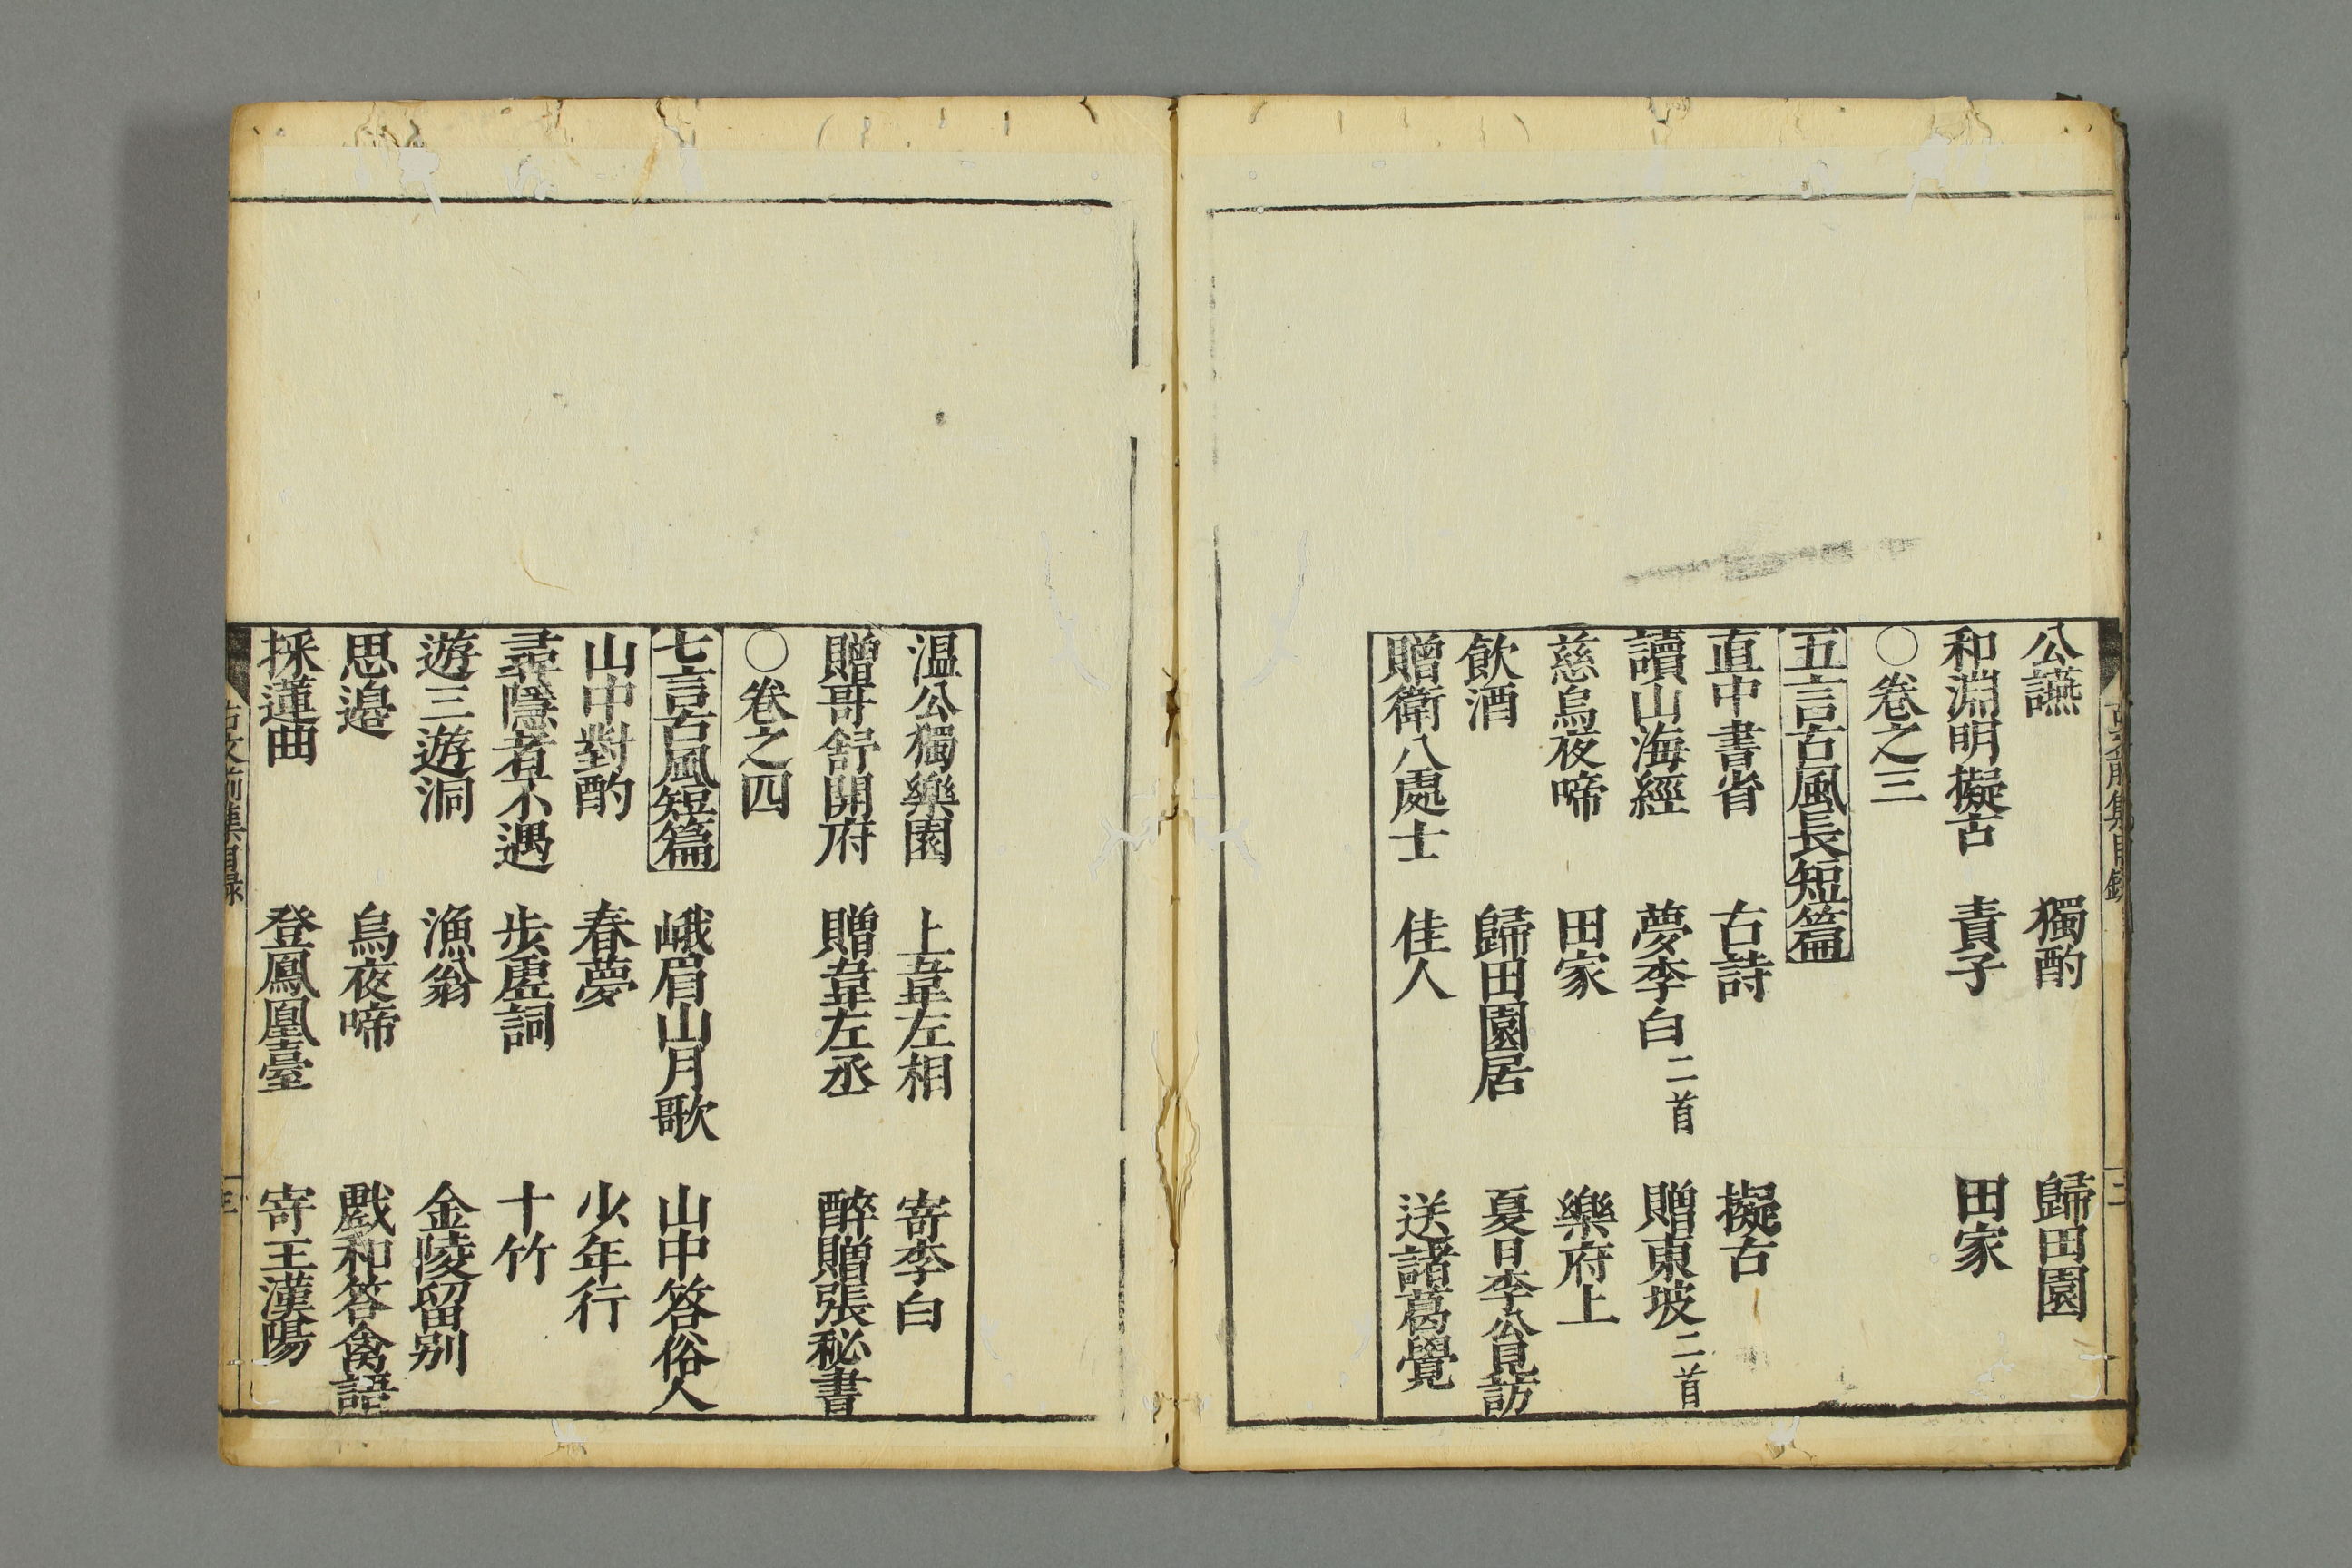 公讌　獨酌　歸田園
和淵明擬古　責子　田家
○卷之三
五言古風長短篇
直中書省　古詩　擬古
讀山海經　夢李白二首　贈東坡二首
慈烏夜啼　田家　樂府上
飲酒　歸田園居　夏日李公見訪
贈衛八處士　佳人　送諸葛覺
温公獨樂園　上韋左相　寄李白
贈哥舒開府　贈韋左丞　醉贈張秘書
○卷之四
七言古風短篇　峨眉山月歌　山中答俗人
山中對酌　春夢　少年行
尋隱者不遇　步虛詞　十竹
遊三遊洞　漁翁　金陵留別
思邉　烏夜啼　戲和答禽語
採蓮曲　登鳳凰臺　寄王漢陽
古文前集目録　三